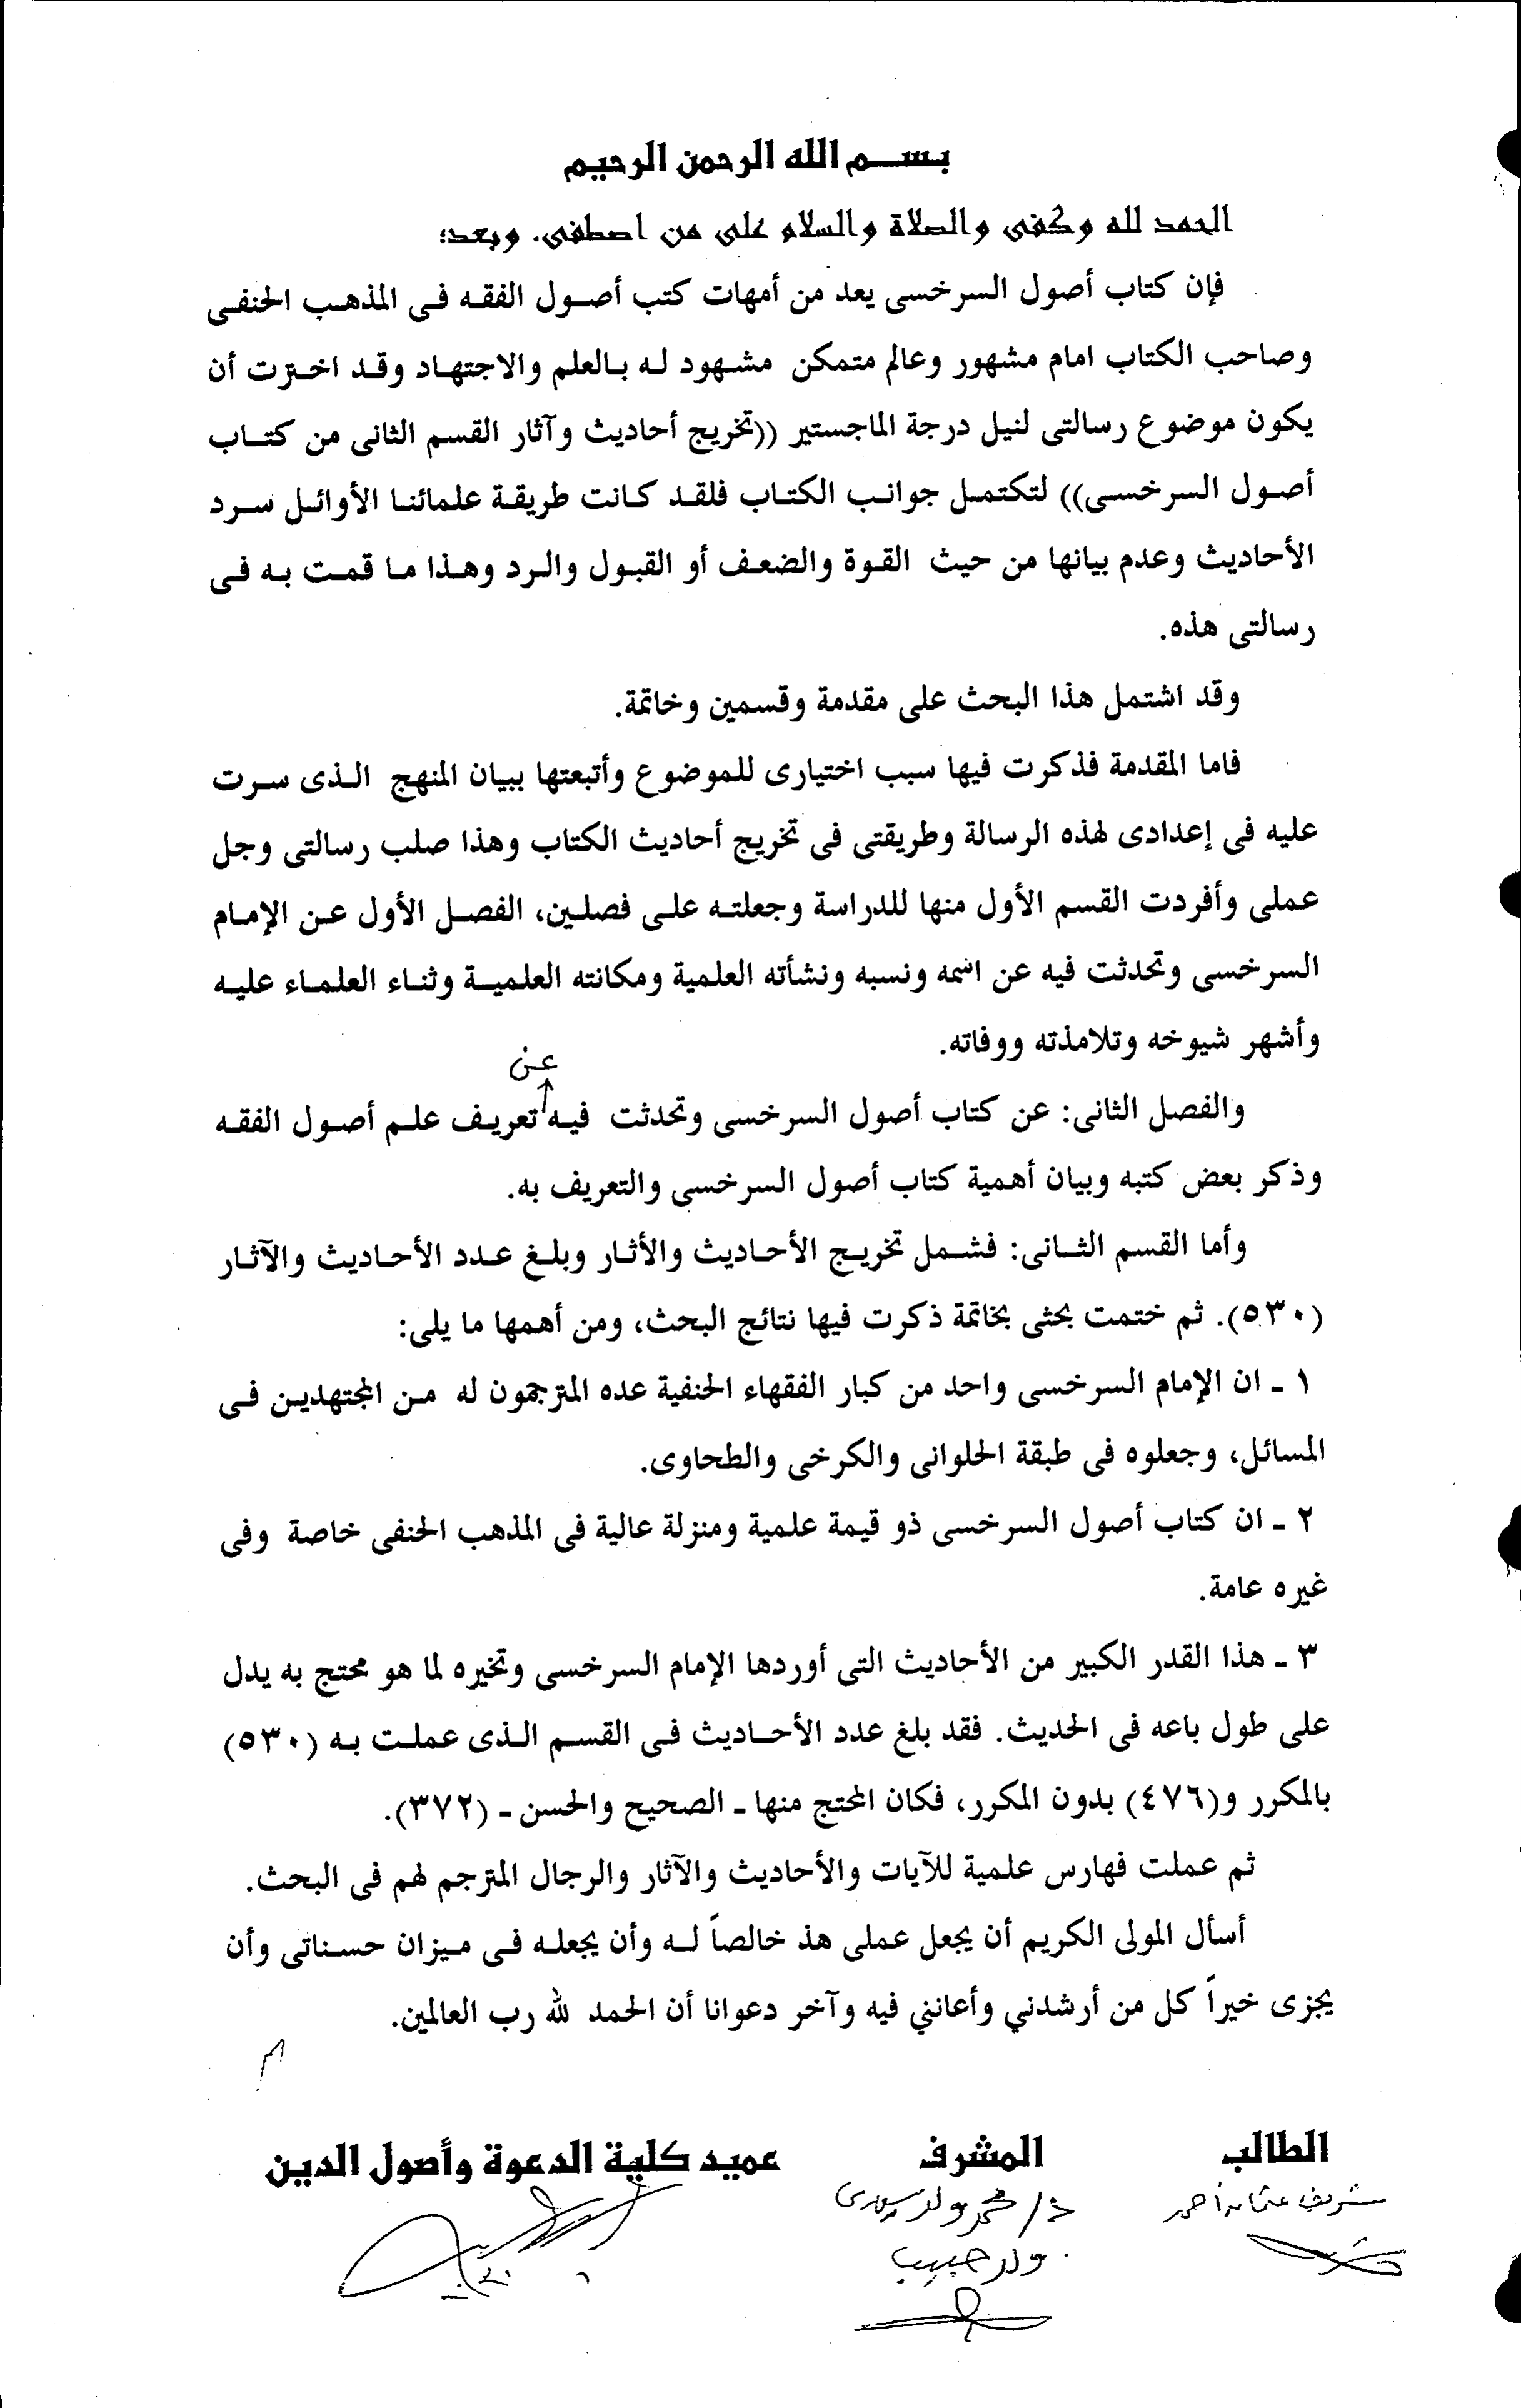 بسم الله الرحمن الرحيم
الحمد لله وكفى والصلاة والسلام على من اصطفى. وبعد؛
فإن كتاب أصول السرخسى يعد من أمهات كتب أصول الفقه فى المذهب الحنفى
وصاحب الكتاب امام مشهور وعالم متمكن مشهود له بالعلم والاجتهاد وقد اخترت أن
يكون موضوع رسالتى لنيل درجة الماجستير ((تخريج أحاديث وآثار القسم الثانى من كتاب
أصول السرخسى)) لتكتمل جوانب الكتاب فلقد كانت طريقة علمائنا الأوائل سرد
الأحاديث وعدم بيانها من حيث القوة والضعف أو القبول والرد وهذا ما قمت به فى
رسالتى هذه.
وقد اشتمل هذا البحث على مقدمة وقسمين وخاتمة.
فاما المقدمة فذكرت فيها سبب اختيارى للموضوع وأتبعتها ببيان المنهج الذى سرت
عليه فى إعدادى لهذه الرسالة وطريقتى فى تخريج أحاديث الكتاب وهذا صلب رسالتى وجل
عملى وأفردت القسم الأول منها للدراسة وجعلته على فصلين، الفصل الأول عن الإمام
السرخسى وتحدثت فيه عن اسمه ونسبه ونشأته العلمية ومكانته العلمية وثناء العلماء عليه
وأشهر شيوخه وتلامذته ووفاته.
عن
والفصل الثانى: عن كتاب أصول السرخسى وتحدثت فيه تعريف علم أصول الفقه
وذكر بعض كتبه وبيان أهمية كتاب أصول السرخسى والتعريف به.
وأما القسم الثانى: فشمل تخريج الأحاديث والأثار وبلغ عدد الأحاديث والآثار
(٥٣٠). ثم ختمت بحثى بخاتمة ذكرت فيها نتائج البحث، ومن أهمها ما يلى:
١ ـ ان الإمام السرخسى واحد من كبار الفقهاء الحنفية عده المترجمون له من المجتهدين فى
المسائل، وجعلوه فى طبقة الحلوانى والكرخى والطحاوى.
٢ ـ ان كتاب أصول السرخسى ذو قيمة علمية ومنزلة عالية فى المذهب الحنفى خاصة وفى
غيره عامة.
٣ ـ هذا القدر الكبير من الأحاديث التى أوردها الإمام السرخسى وتخيره لما هو محتج به يدل
على طول باعه فى الحديث. فقد بلغ عدد الأحاديث فى القسم الذى عملت به (٥٣٠)
بالمكرر و(٤٧٦) بدون المكرر، فكان المحتج منها ـ الصحيح والحسن ـ (٣٧٢).
ثم عملت فهارس علمية للآيات والأحاديث والآثار والرجال المترجم لهم فى البحث.
أسأل المولى الكريم أن يجعل عملى هذ خالصاً له وأن يجعله فى ميزان حسناتى وأن
يجزى خيراً كل من أرشدني وأعانني فيه وآخر دعوانا أن الحمد لله رب العالمين.
الطالب المشرف عميد كلية الدعوة وأصول الدين
شريف عثمان أحمد د/ محمد ولد سيدى
ولد حبيب